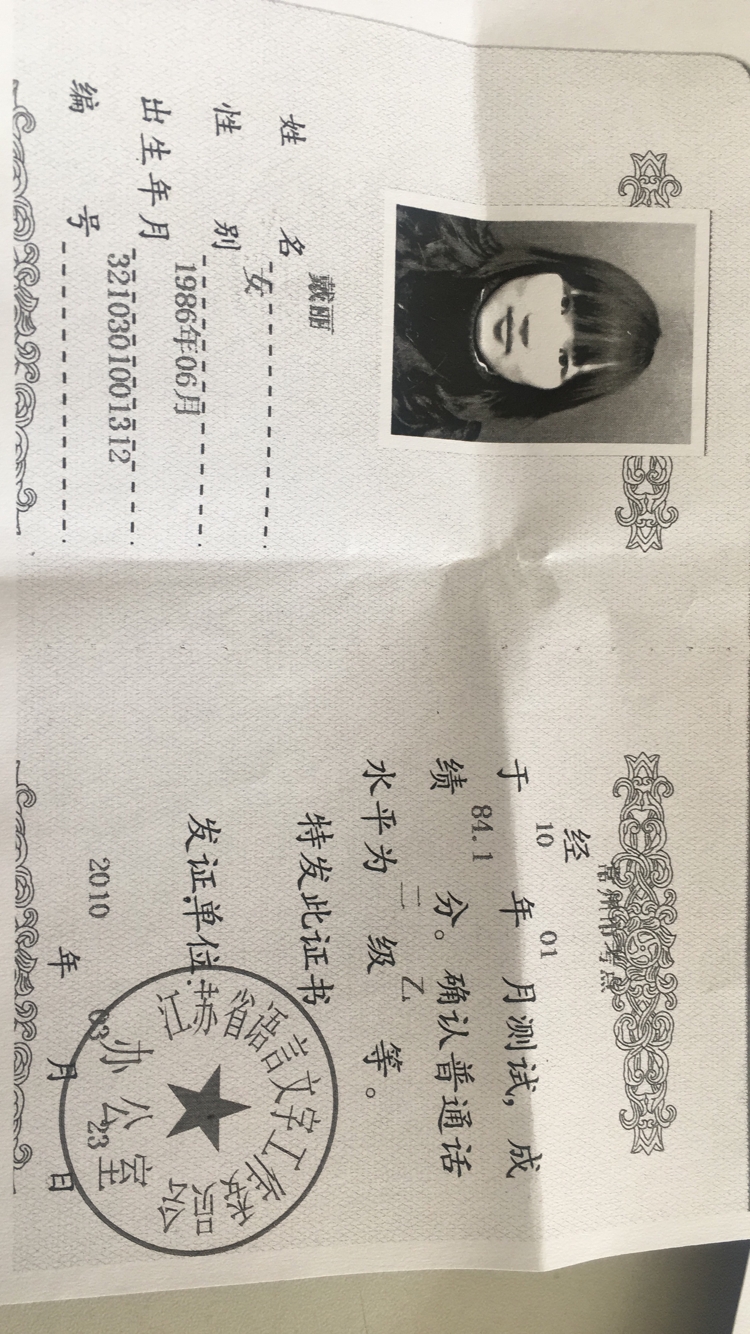 姓名 戴丽
性别 女
出生年月 1986年06月
编号 3210301001312
经 常州市考点
于 10 年 01 月测试，成
绩 84.1 分。确认普通话
水平为 二 级 乙 等。
特发此证书
发证单位：
江苏省语言文字工作委员会
办公室
2010 年 03 月 23 日